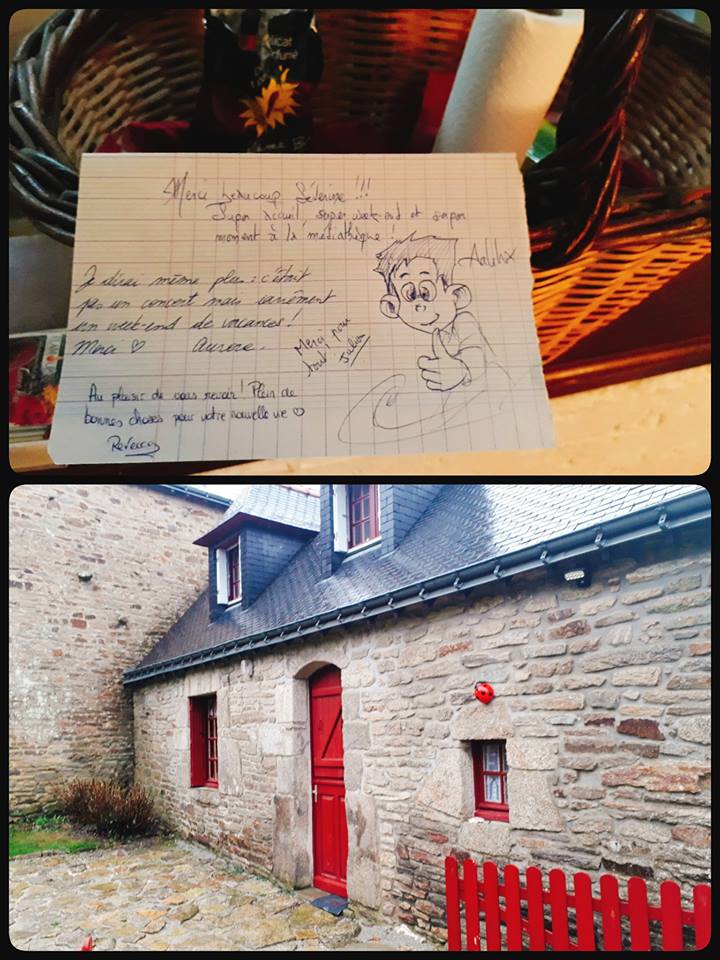 Délicat
Parfumé
Merci beaucoup Séverine !!!
Super accueil, super week-end et super
moment à la médiathèque !
Je dirai même plus : c'était
pas un concert mais carrément
un week-end de vacances !
Merci ♡ Aurore.
Merci pour
tout
Julien
Au plaisir de vous revoir ! Plein de
bonnes choses pour votre nouvelle vie ♡
Rebecca